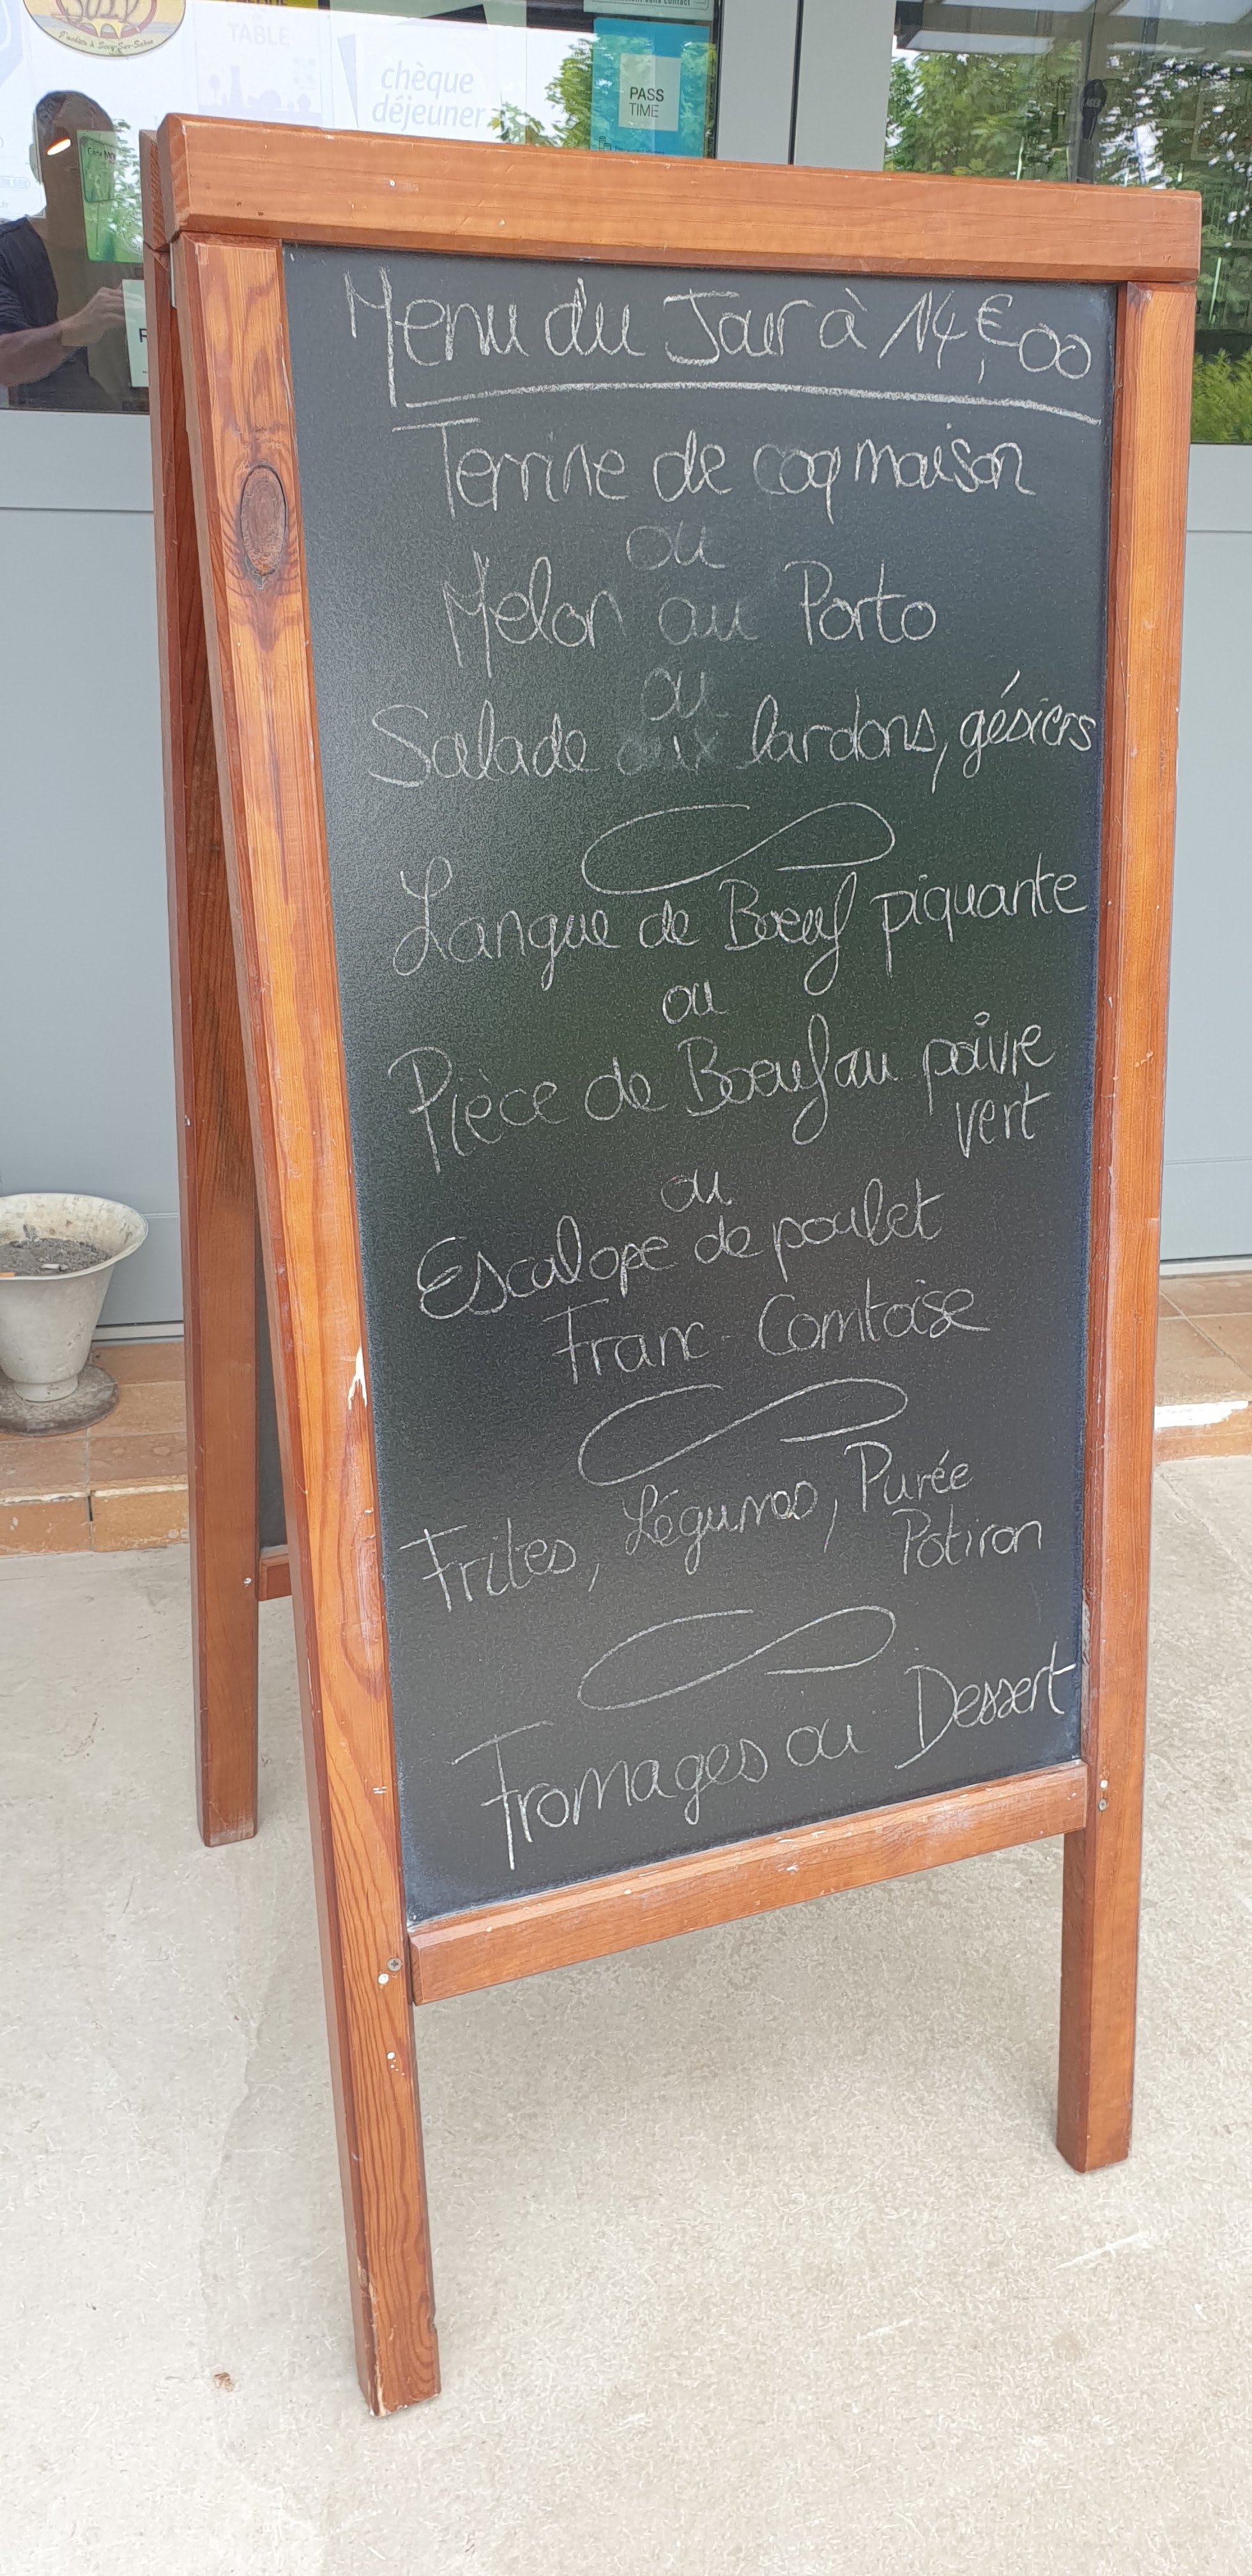 TABLE
chèque
déjeuner
PASS
TIME
Menu du Jour à 14,€00
Terrine de coq maison
ou
Melon au Porto
ou
Salade aux lardons, gésiers
Langue de Boeuf piquante
ou
Pièce de Boeuf au poivre
vert
ou
Escalope de poulet
Franc-Comtoise
Frites, Légumes, Purée
Potiron
Fromages ou Dessert